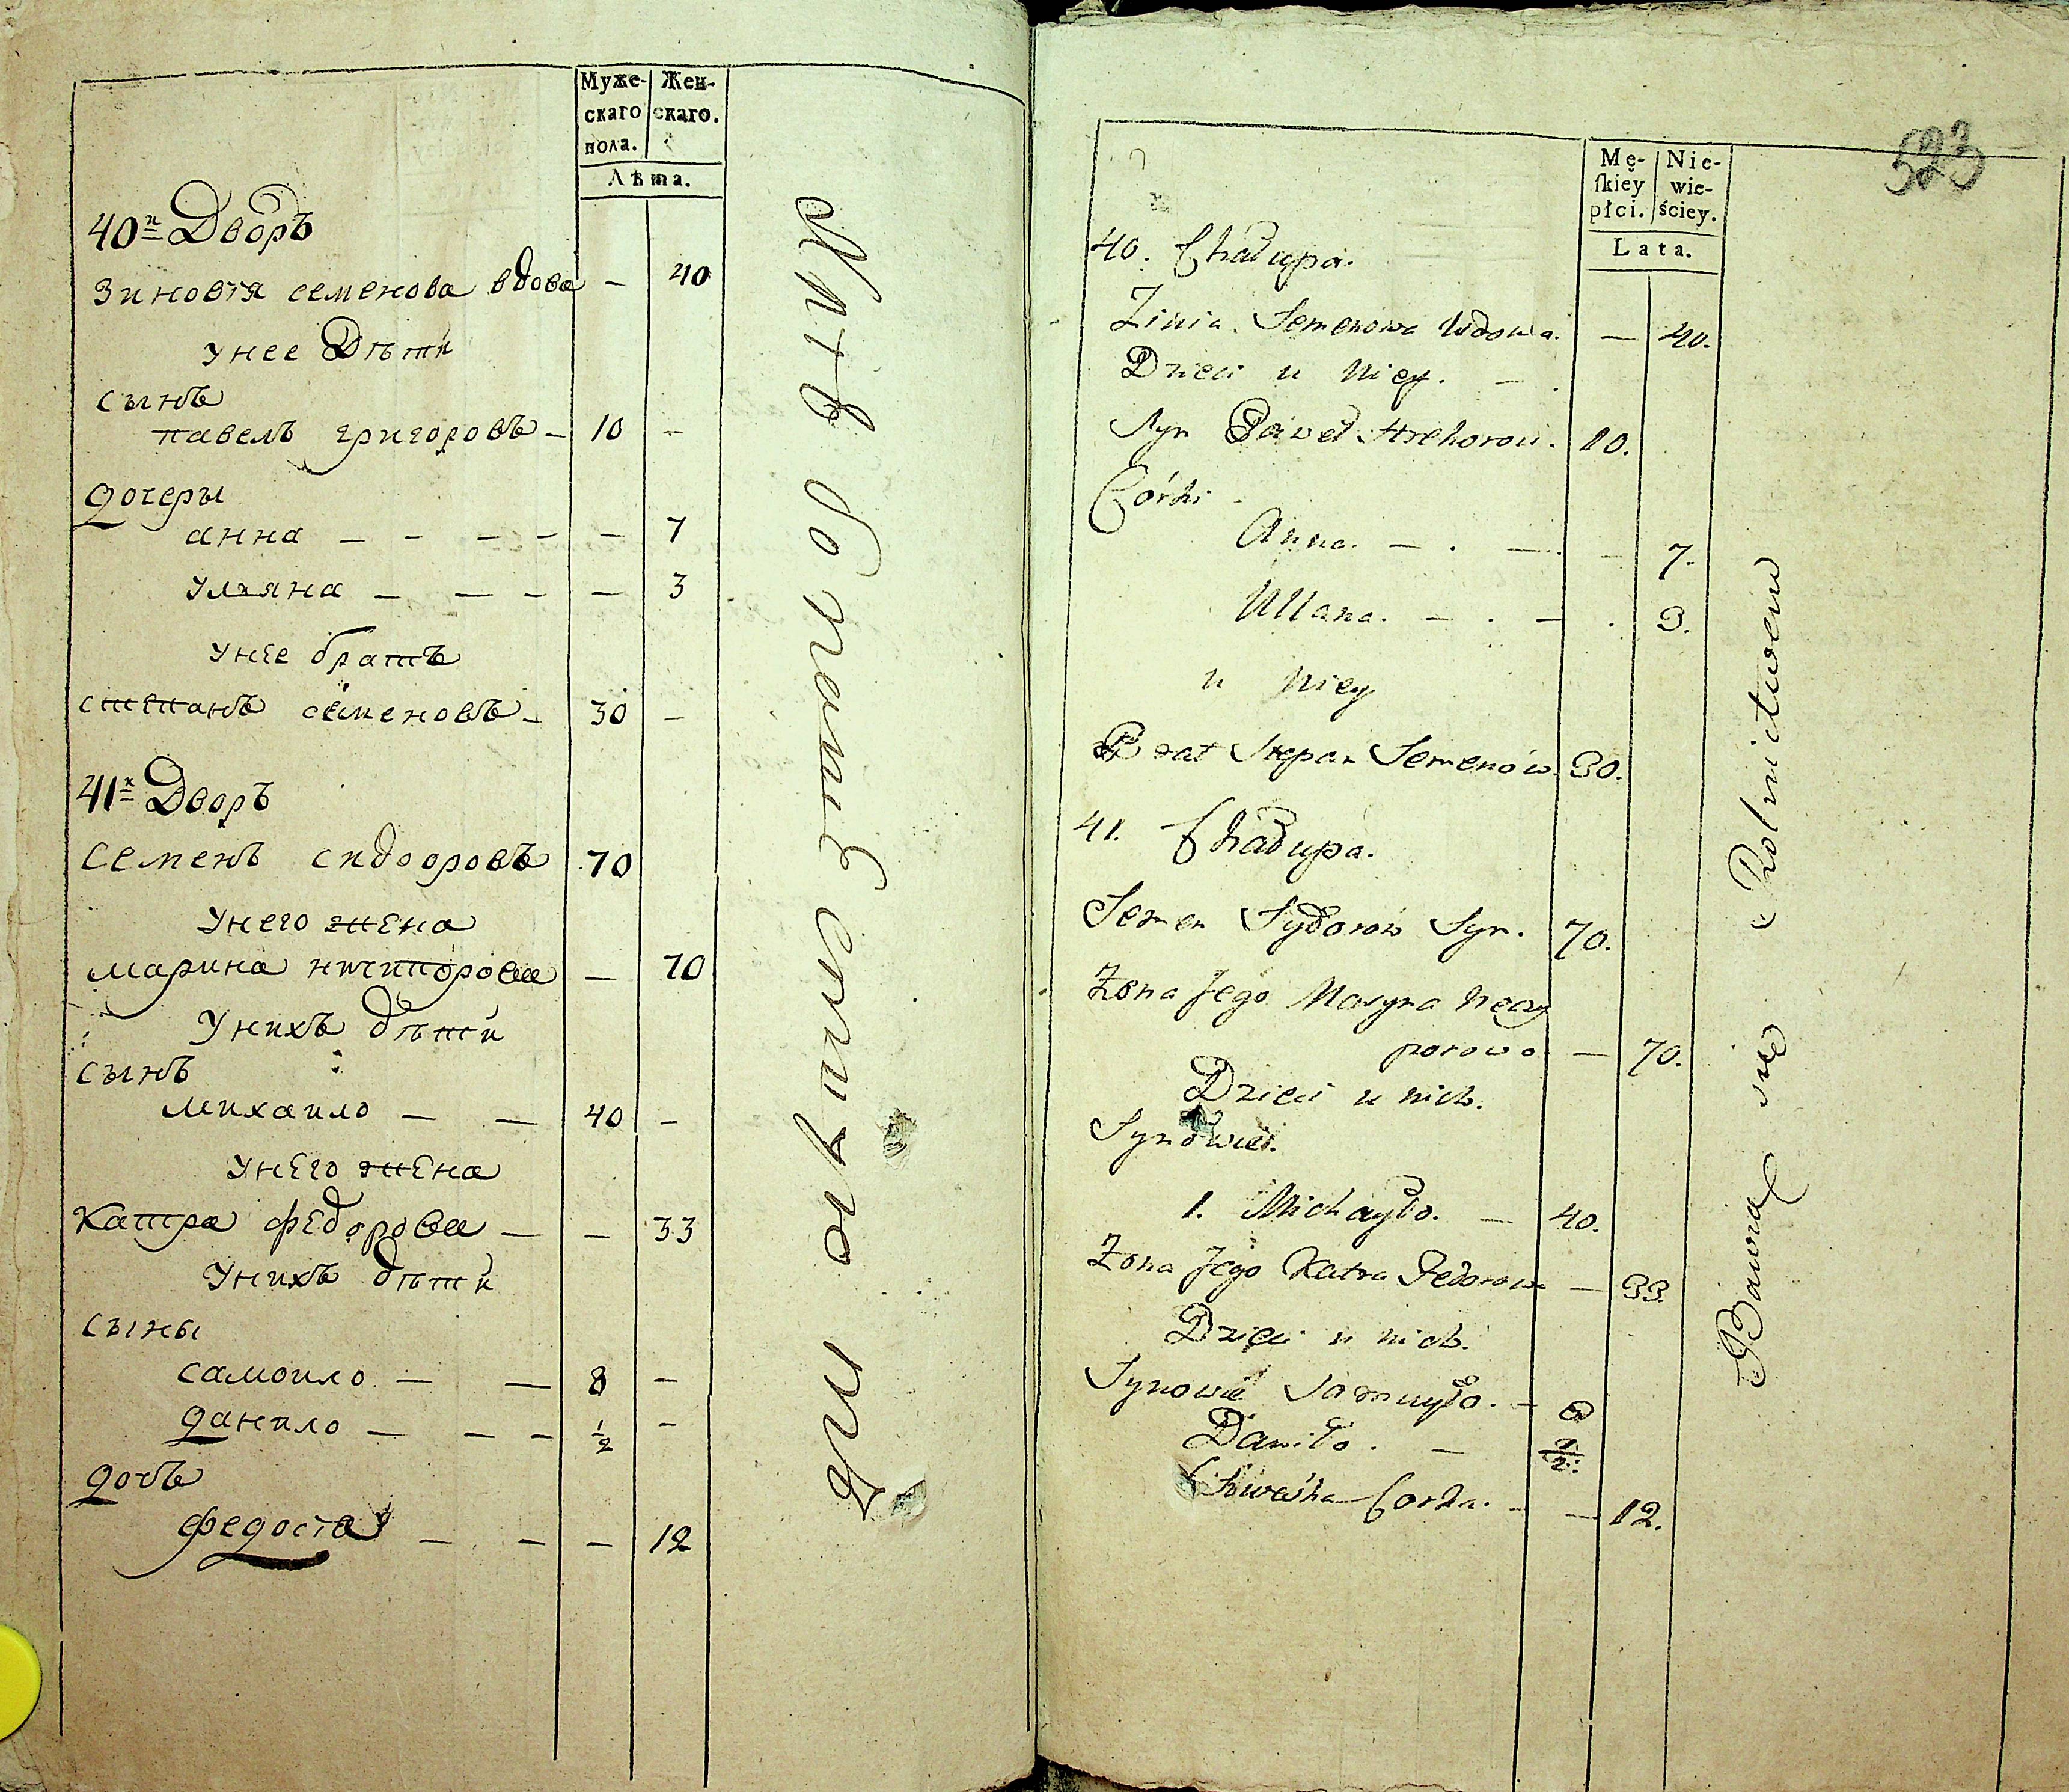 Муже-
скаго
пола.
Жен-
скаго.
Лѣта.
40й Дворъ
Зиновія семенова вдова – 40
унее Дѣти
сынъ
павелъ григоровъ – 10 –
дочеры
анна – – – – – 7
уляна – – – – 3
унее братъ
степанъ семеновъ – 30 –
41й Дворъ
Семенъ сидооровъ 70
унего жена
марина ничипорова – 70
Унихъ дѣти
сынъ
михаило – – 40 –
унего жена
катра федорова – – 33
Унихъ дѣти
сыны
самоило – – 8 –
данило – – – ½ –
дочъ
федосія – – – 12
523
Mę-
ſkiey
płci.
Nie-
wie-
ściey.
Lata.
40. Chałupa.
Zinia. Semenowa Wdowa. – 40.
Dzieci u Niey. –
Syn Paweł Hrehorow. 10.
Córki
Anna. – . – . – 7.
Ullana. – . – . 3.
u Niey
Brat Stepan Semenów. 30.
41. Chałupa.
Semen Sydorow Syn. 70.
Żona Jego Maryna Neczy
porowa. – 70.
Dzieci u nich.
Synowie.
1. Michayło. – 40.
Żona Jego Katra Fedorowa – 33.
Dzieci u nich.
Synowie Samuyło. – 8
Daniło. – ½.
Córka. – – 12.
Bawią się Rolnictwem